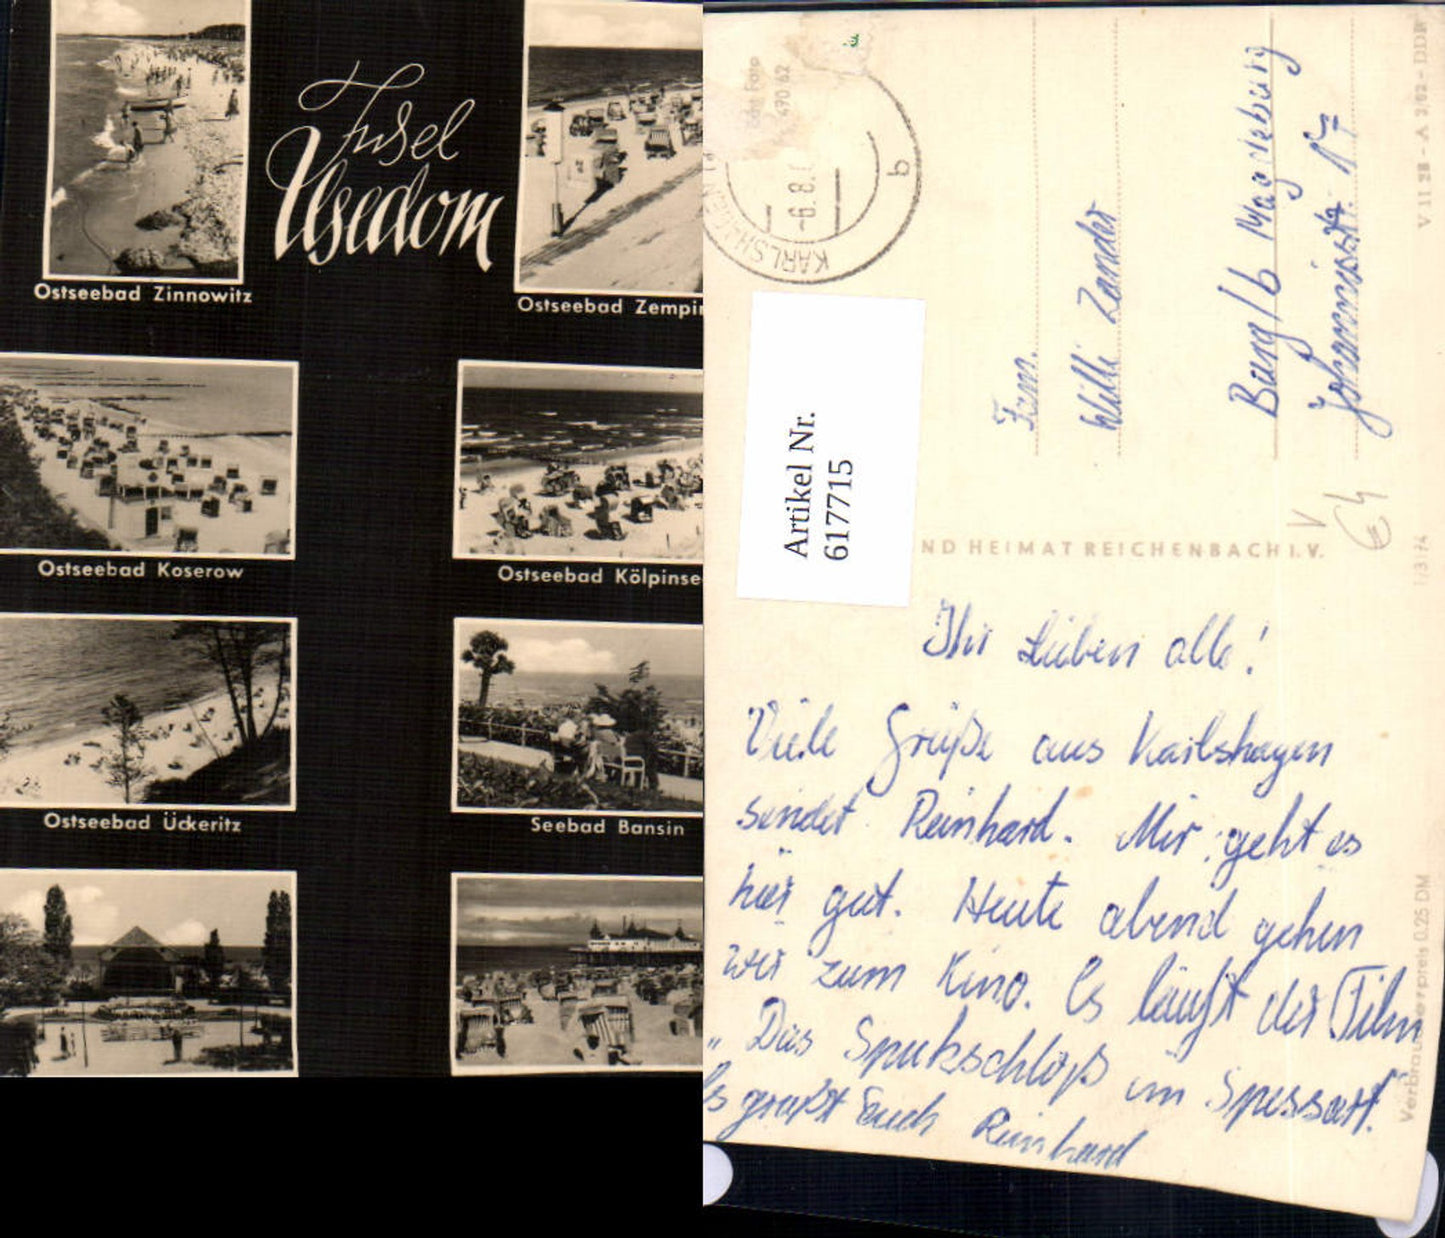 Insel
Usedom
Ostseebad Zinnowitz
Ostseebad Zempin
Ostseebad Koserow
Ostseebad Kölpinse
Ostseebad Ückeritz
Seebad Bansin
Echt Foto
490/62
KARLSHAGEN
-6.8.
b
Artikel Nr.
617715
Fam.
Willi Zander
Burg/b Magdeburg
Johannisstr. 17
V 11 28 - A 3/62 - DDR
ND HEIMAT REICHENBACH I. V.
Verbraucherpreis 0.25 DM
Ihr Lieben alle!
Viele Grüße aus Karlshagen
sendet Reinhard. Mir geht es
hier gut. Heute abend gehen
wir zum Kino. Es läuft der Film
„Das Spukschloß im Spessart."
Es grüßt Euch Reinhard